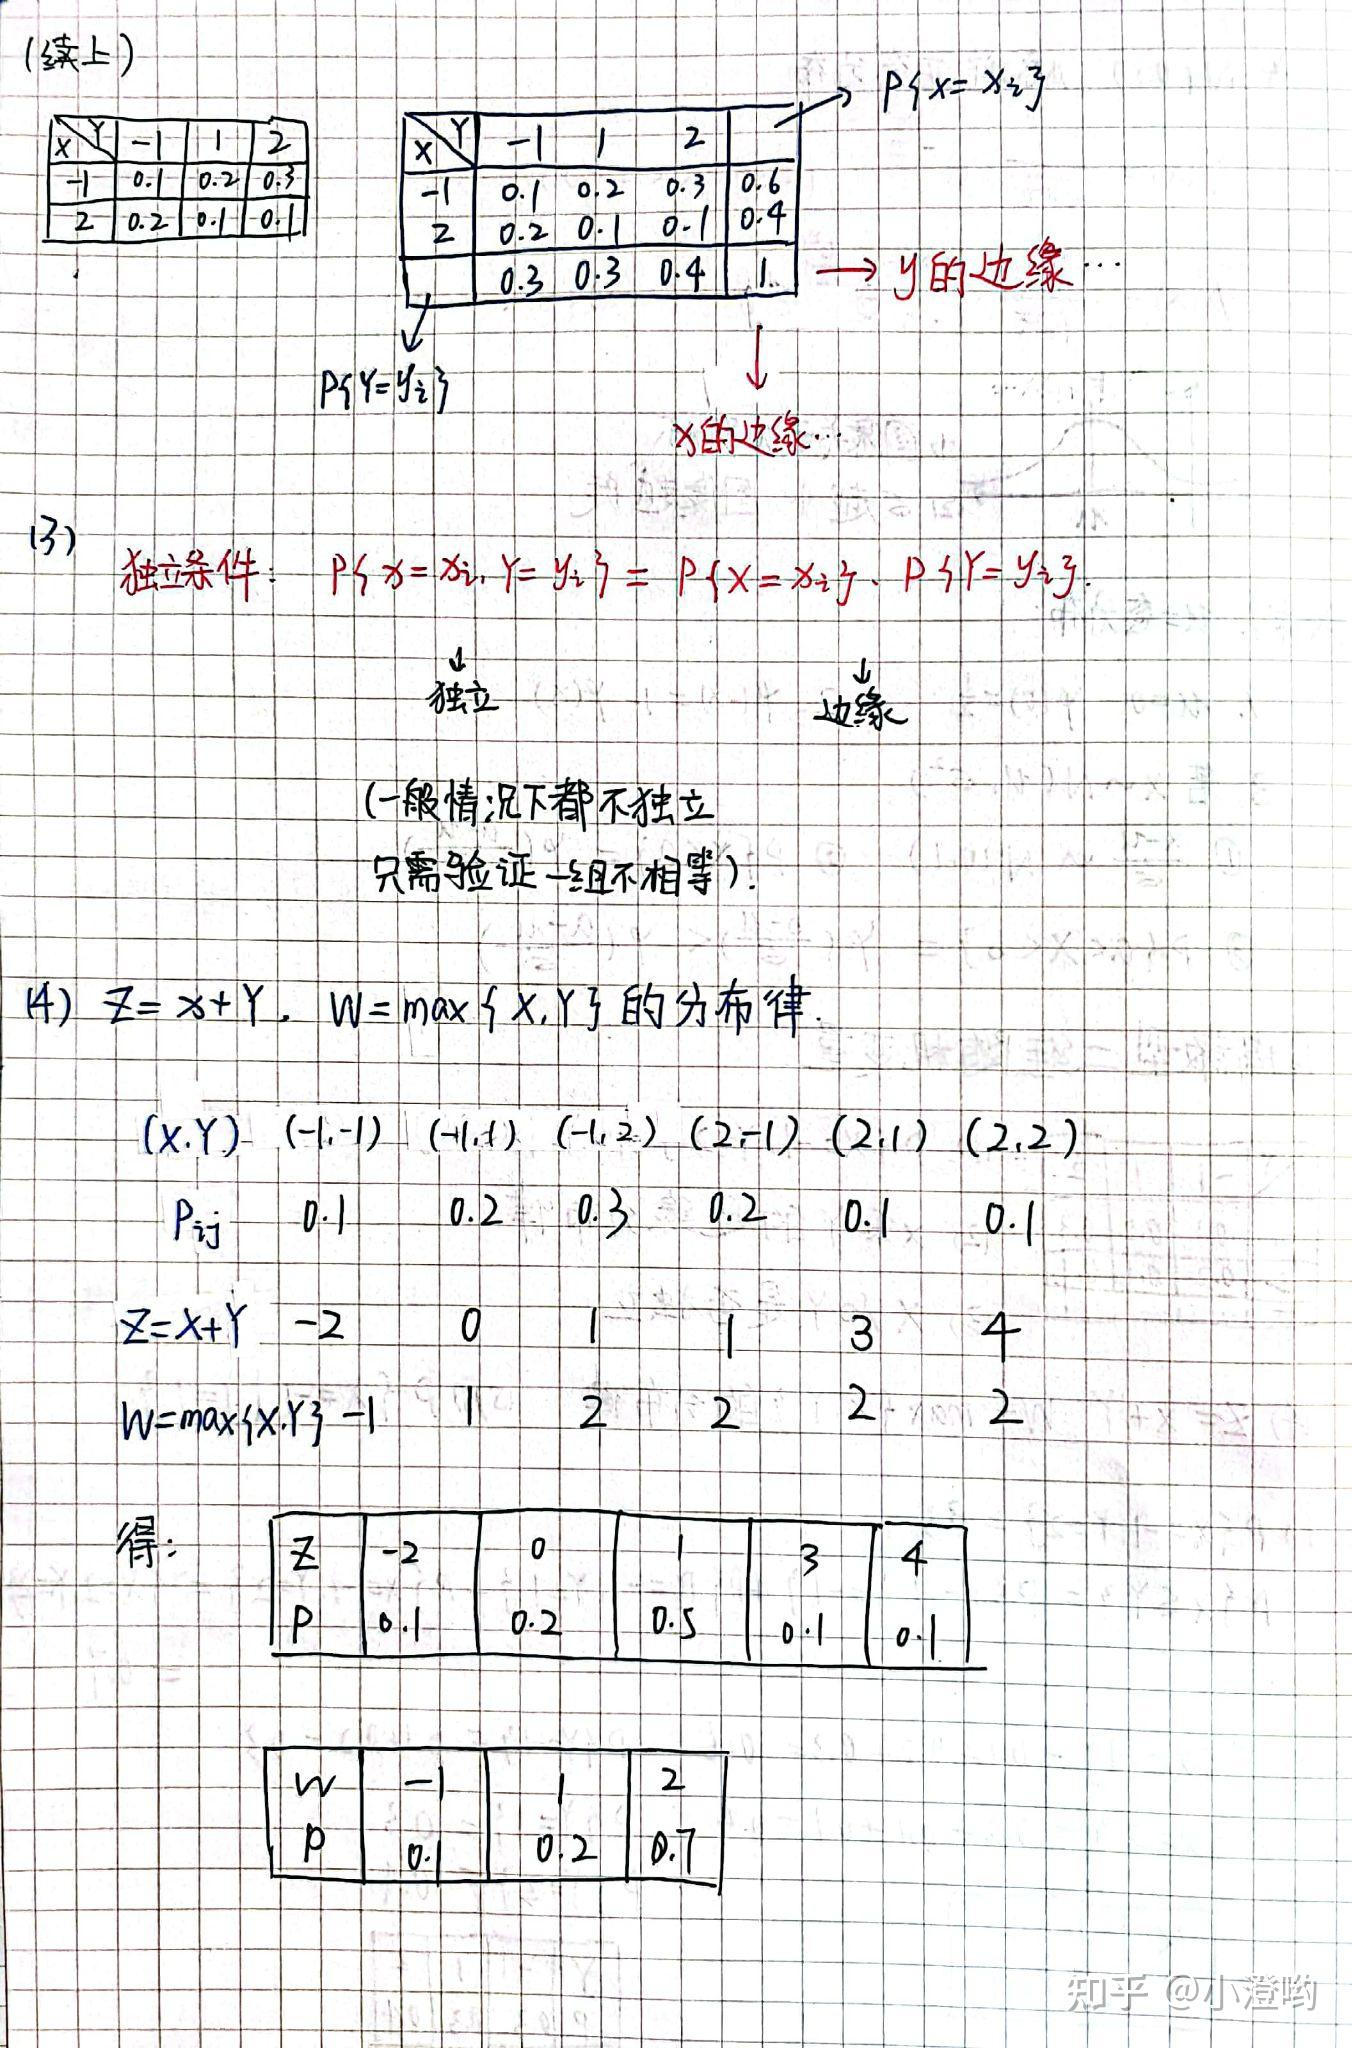 (续上)
X Y -1 1 2
-1 0.1 0.2 0.3
2 0.2 0.1 0.1
P{x=xi}
X Y -1 1 2
-1 0.1 0.2 0.3 0.6
2 0.2 0.1 0.1 0.4
0.3 0.3 0.4 1
→ y的边缘…
P{Y=yi}
x的边缘…
(3)
独立条件: P{x=xi, Y=yi} = P{X=xi}·P{Y=yi}.
↓ ↓
独立 边缘
(一般情况下都不独立
只需验证一组不相等).
(4) Z=x+Y, W=max{X,Y}的分布律.
(X.Y) (-1,-1) (-1,1) (-1,2) (2,-1) (2,1) (2,2)
Pij 0.1 0.2 0.3 0.2 0.1 0.1
Z=X+Y -2 0 1 1 3 4
W=max{X.Y} -1 1 2 2 2 2
得:
Z -2 0 1 3 4
P 0.1 0.2 0.5 0.1 0.1
W -1 1 2
P 0.1 0.2 0.7
知乎 @小澄哟